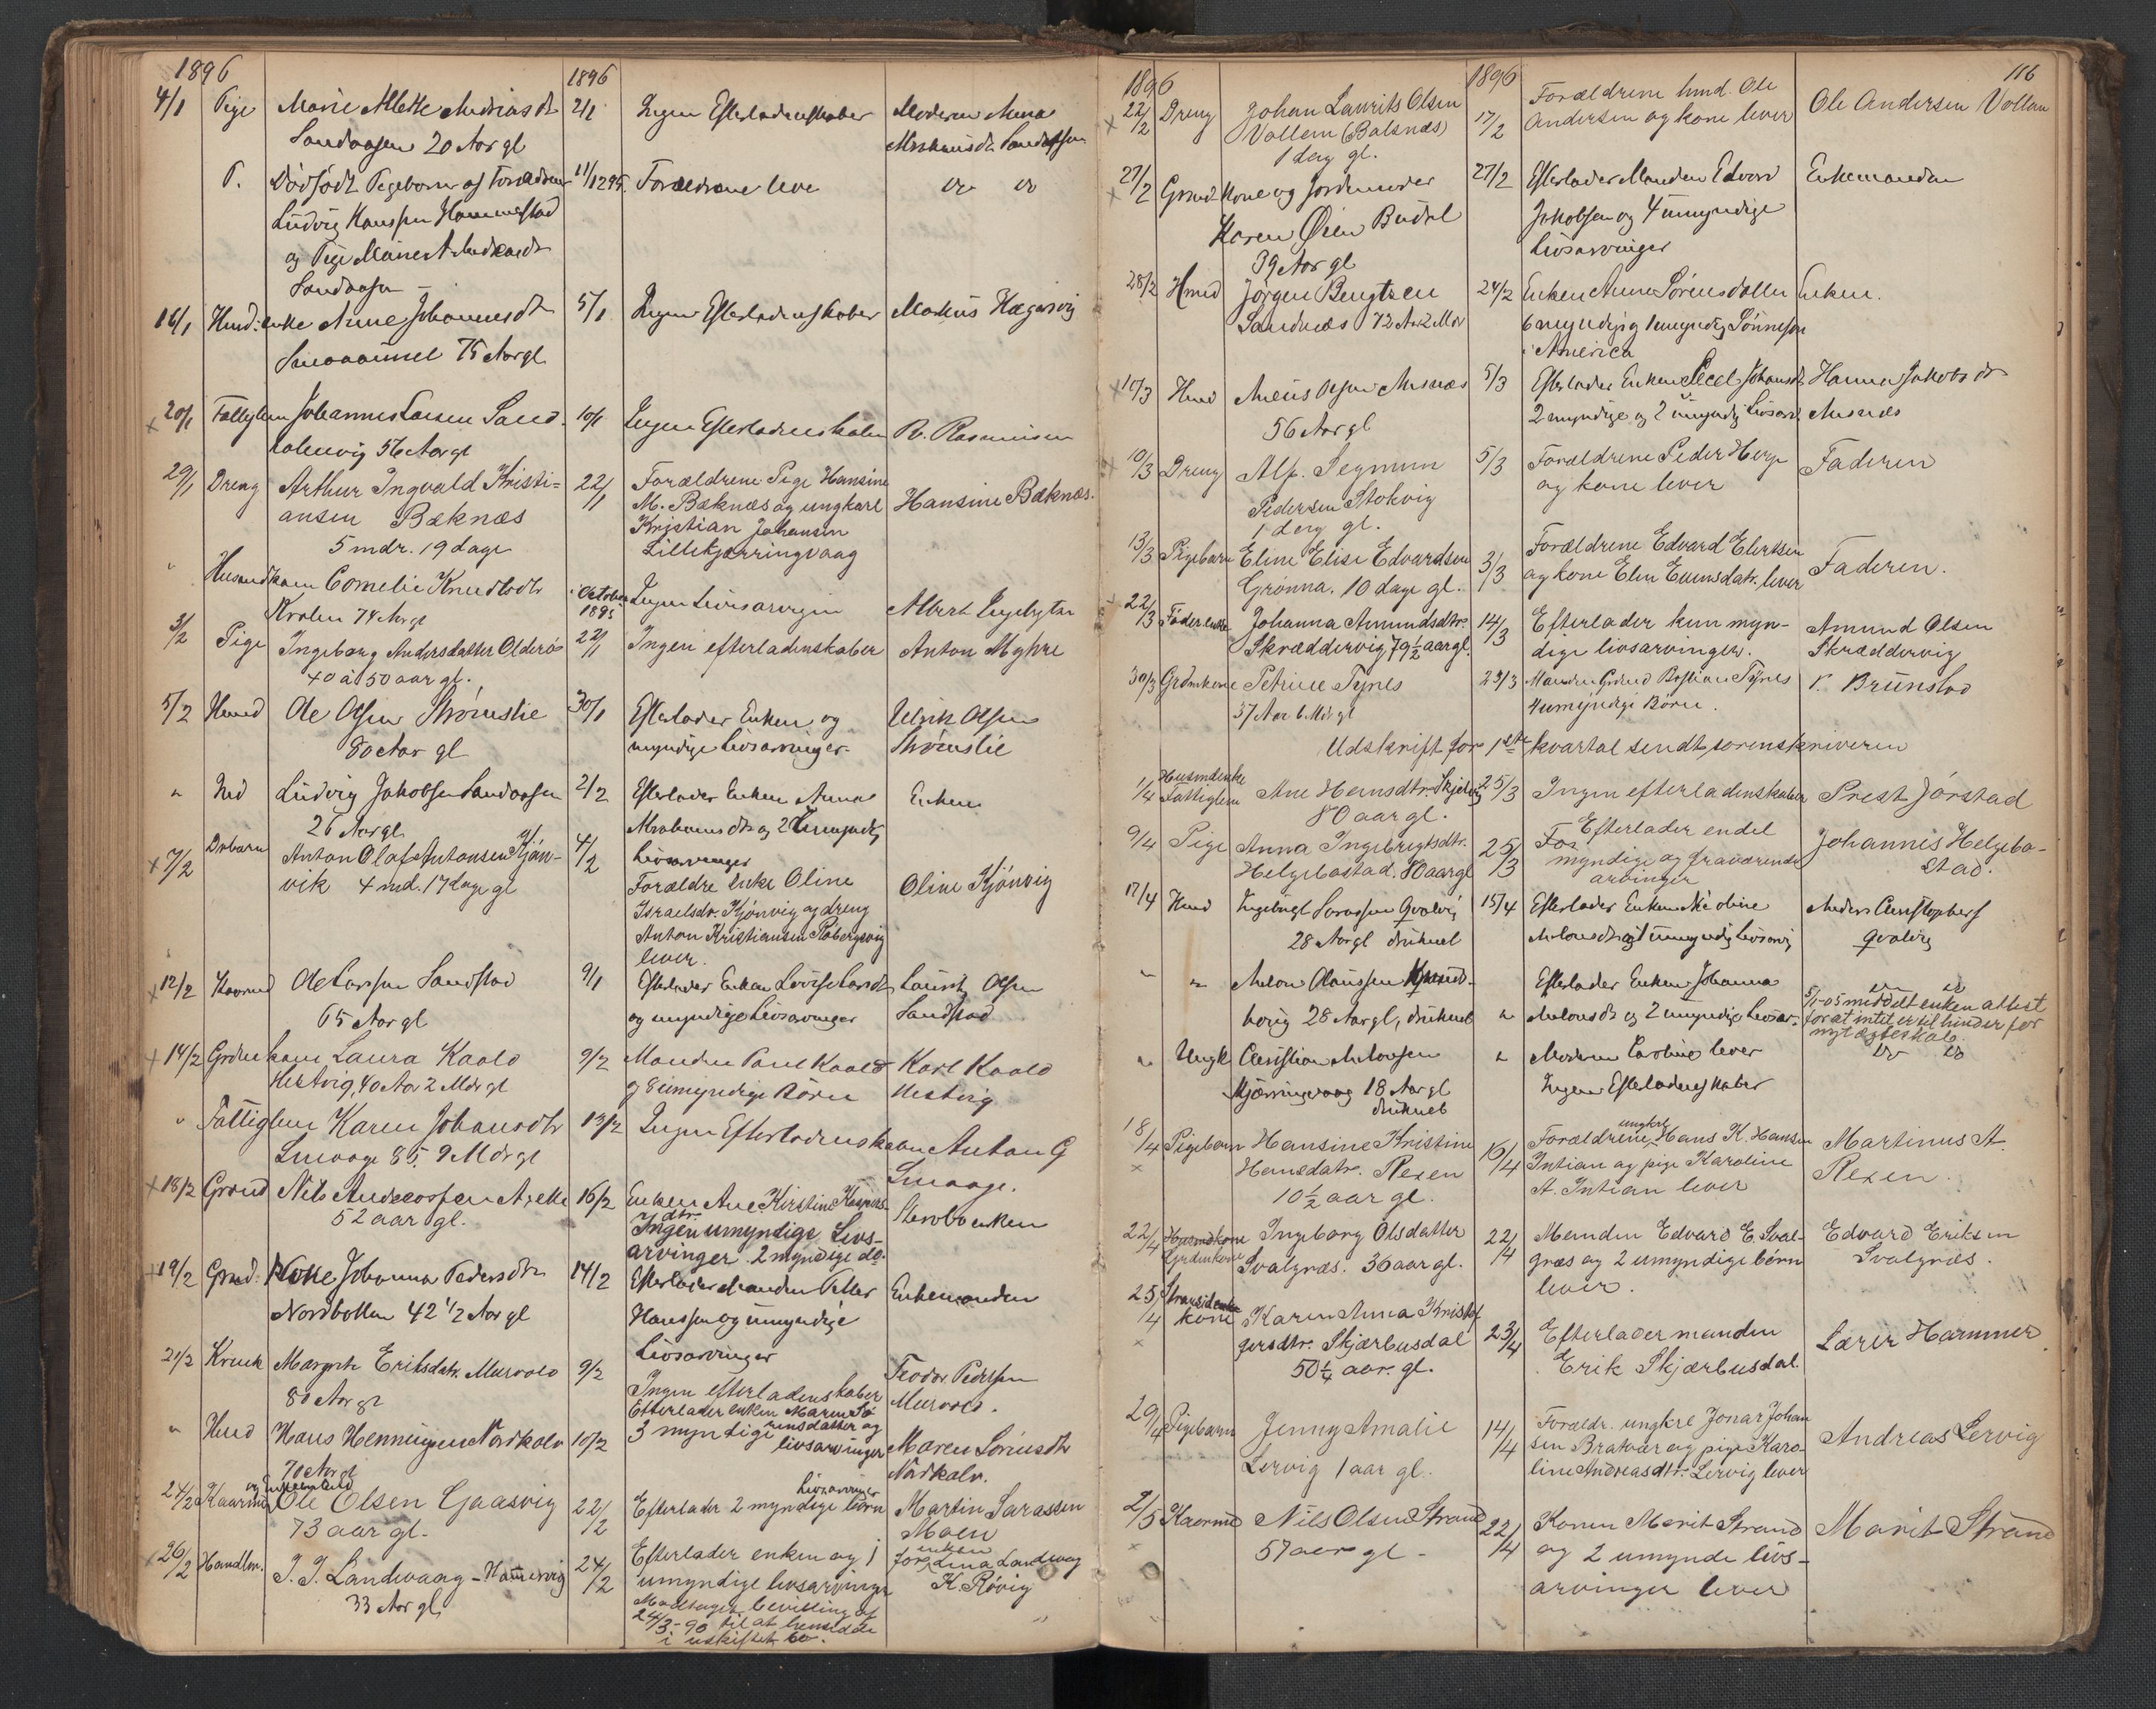 1896
1896
4/1 Pige Marie Mette Andriasdtr 2/1 Ingen Efterladenskaber Moderen Anna
Sandaasen 20 Aar gl Abrahamsdtr Sandaasen
P. Dødfødt Pigebarn af Forældrene 11/12 95. Forældrene leve do do
Ludvig Hanssen Hammerstad
og Pige
Sandaasen
16/1 Husmd: enke Anne Johannesdtr 5/1 Ingen Efterladenskaber Markus Hægsvig
75 Aar gl
x 20/1 Fattiglem Johannes Larsen Sand- 10/1 Ingen Efterladenskaber R. Rasmussen
holmvig 56 Aar gl
29/1 Dreng Arthur Ingvald Kristi- 22/1 Forældrene Pige Hansine Hansine Bæknæs.
ansen Bæknæs M. Bæknæs og ungkarl
5 mdr. 19 dage Kristian Johansen
Lillekjærringvaag
" Husmdkone Cornelie Knudtsdtr i October 1895 Ingen Livsarvinger Albert Ingebrigtsen
74 Aar gl
3/2 Pige Ingeborg Andersdatter Olderøs 22/1 Ingen efterladenskaber Anton Myhre
40 à 50 aar gl.
5/2 Husmd Ole Olsen Strømslie 30/1 Efterlader Enken og Ulrik Olsen
80 Aar gl myndige Livsarvinger Strømslie
" Inds Ludvig Jakobsen Sandaasen 2/2 Efterlader Enken Anna Enken
26 Aar gl Abrahamsdtr og 2 umyndige
Livsarvinger
x 7/2 Drbarn Anton Olaf Antonsen Kjøn- 4/2 Forældre enke Oline Oline Kjønvig
vik 4 md. 17 dage gl Israelsdr. Kjønvig og dreng
Anton Kristiansen Robergsvig
lever.
x 12/2 Kaarmd Ole Larsen Sandstad 9/1 Efterlader Enken Lovise Larsdtr Laurits Olsen
65 Aar gl og myndige Livsarvinger Sandstad
x 14/2 Grdmkone Laura Kaald 9/2 Manden Paul Kaald Karl Kaald
Hestvig, 40 Aar 2 Mdr gl og 8 umyndige Børn Hestvig
" Fattiglem Karen Johansdtr 13/2 Ingen Efterladenskaber Anton G
Smaage 85, 9 Mdr gl Smaage.
x 18/2 Grdmd Nils Andreassen 16/2 Enken Ane Kirstine Kaspers- Sterboenken
52 aar gl. dtr. Ingen umyndige Livs-
arvinger. 2 myndige do.
x 19/2 Grmd: Kone Johanna Pedersdtr 14/2 Efterlader Manden Petter Enkemanden
Nordbotten 42 1/2 Aar gl Hanssen og umyndige
Livsarvinger
21/2 Margrete Eriksdatr. Murvold 9/2 Ingen efterladenskaber Teodor Pedersen
80 Aar gl Murvold.
" Husmd Hans Henningsen Nordkalv 10/2 Efterlader enken Maren Sø- Maren Sørensdtr
70 Aar gl rensdatter og 3 myndige livsarvinger Nordkalv.
24/2 Kaarmd og Ole Olsen Gaasvig 22/2 Efterlader 2 myndige børn Livsarvinger Martin Sarassen
73 aar gl. Moen
x 26/2 Handlm. J. J. Landevaag - Hamnsvig 24/2 Efterlader enken og 1 for enken Lina Landevaag
33 Aar gl umyndige livsarvinger K. Røvig
Modtaget bevilling af
24/3 - 90 til at hensidde
i uskiftet bo.
116
1896
1896
x 22/2 Dreng Johan Laurits Olsen 17/2 Forældrene hmd. Ole Ole Andersen Vollan
Vollem (Balsnæs) Andersen og kone lever
1 dag gl.
x 27/2 Grmd Kone og Jordemoder 27/2 Efterlader Manden Edvard Enkemanden
Karen Øien Budal Jakobsen og 4 umyndige
39 Aar gl Livsarvinger
28/2 Hmd Jørgen Bengtsen 24/2 Enken Anne Sørensdatter Enken.
Sandnæs 72 Aar 2 Mdr 6 myndige og 1 umyndig Sønnesøn
i America
x 10/3 Hmd Olsen Aresnæs 5/3 Efterlader Enken Johansdtr Hanna Jakobsdtr
56 Aar gl 2 myndige og 2 umyndig Livsarv.
10/3 Dreng Alf Segmun 5/3 Forældrene Peder Herje Faderen
Pedersen Stokvig og kone lever
1 dag gl.
13/3 Pigebarn Eline Elise Edvardsen 3/3 Forældrene Edvard Elertsen Faderen.
Grønna. 10 dage gl. og kone Elen lever
22/3 Føderenke Johanna Amundsdtr. 14/3 Efterlader kun myn- Amund Olsen
Skræddervig 79 1/2 aar gl. dige livsarvinger. Skræddervig
30/3 Grdmkone Petrine Tynes 23/3 Manden Grdmd Bastian Tynes P. Brunstad
37 Aar 6 Mdr gl 4 umyndige Børn.
Udskrift for 1ste kvartal sendt sorenskriveren
1/4 Husmdenke Fattiglem Ane Hansdtr Skjelvig 25/3 Ingen efterladenskaber Prest Jørstad
80 aar gl.
9/4 Pige Anna Ingebrigtsdtr. 25/3 Efterlader endel Johannes Helgebo-
Helgebostad. 80 aar gl myndige og fraværende stad.
arvinger
17/4 Hmd Ingebrigt Qvalvig 15/4 Efterlader Enken Anders Christophers
28 Aar gl druknet Antonsdtr og 1 umyndig Livsarving Qvalvig
" " Anton Olaussen Efterlader Enken Johanna do do
28 Aar gl, druknet " Antonsdtr og 2 umyndige Livsarv. 5/1-05 meddelt enken attest
for at intet er til hinder for
nyt ægteskab.
" Ungk Christian Antonsen " Moderen Caroline lever do do
Kjærringvaag 18 Aar gl Ingen Efterladenskaber
druknet
18/4 Pigebarn Hansine Kristine 16/4 Forældrene ungkrl Hans K. Hansen Martinus A.
x Hansdatr. Rexen Intian og pige Karoline Rexen.
10 1/2 aar gl. A. Intian lever
22/4 Husmdkone Grdmkone Ingeborg Olsdatter 22/4 Manden Edvard E. Sval- Edvard Eriksen
Svalgræs. 36 aar gl. græs og 2 umyndige børn Svalgræs.
lever.
25/4 kone Karen Anna Kristof- 23/4 Efterlader manden Lærer Hammer
x fersdtr. Skjærbusdal Erik Skjærbusdal.
50 1/4 aar. gl.
29/4 Pigebarn Jenny Amalie 14/4 Forældr. ungkrl Jonar Johan Andreas Lervig
Lervig 1 aar gl. sen Bratvær og pige Karo-
line Andreasdtr. Lervig lever
2/5 Kaarmd Nils Olsen Strand 22/4 Konen Marit Strand Marit Strand
x 57 aar gl - og 2 umynde livs-
arvinger lever